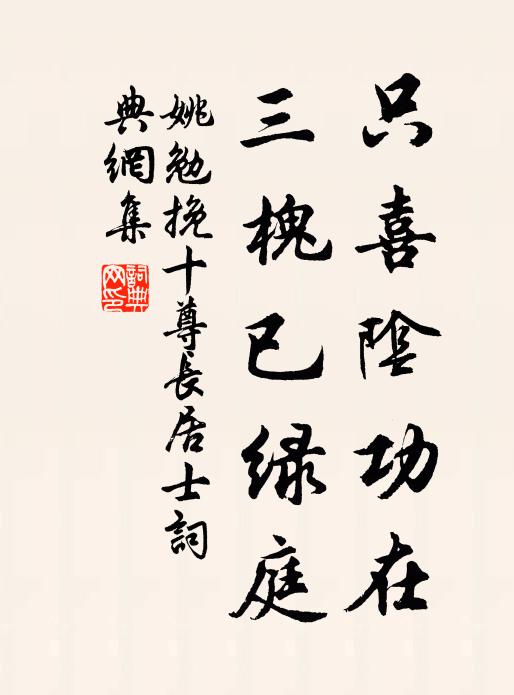 只喜陰功在
三槐已綠庭
姚勉挽十尊長居士詞
典網集
詞典网印